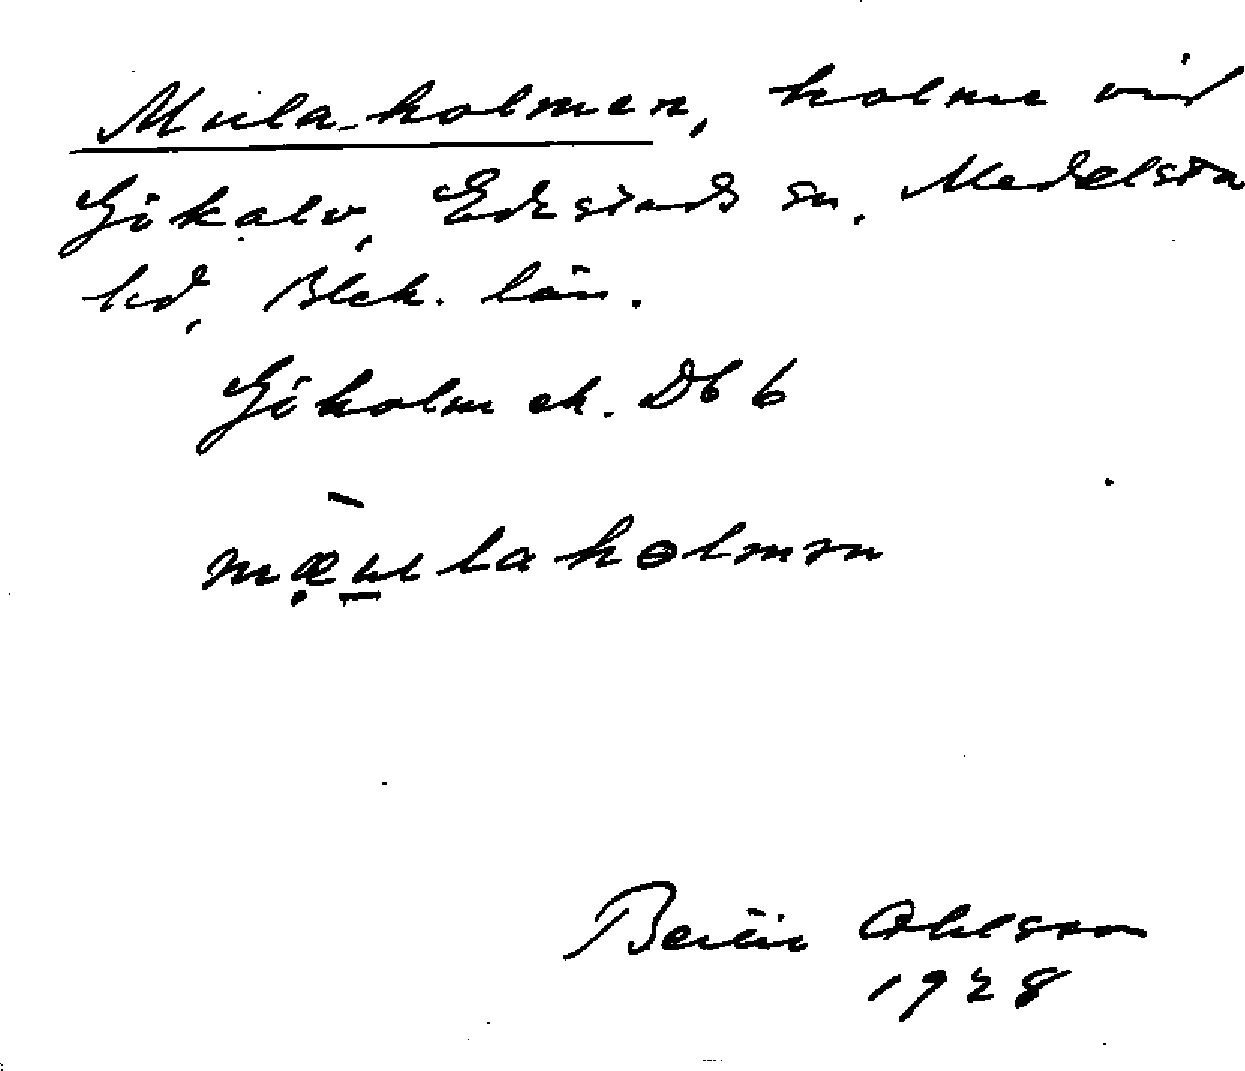 Mula-holmen, holme vid
Gökalv, Edestads sn, Medelsta
hd, Blek. län.
Göholm ek. Db 6
mæulaholmən
Ohlsson
1928